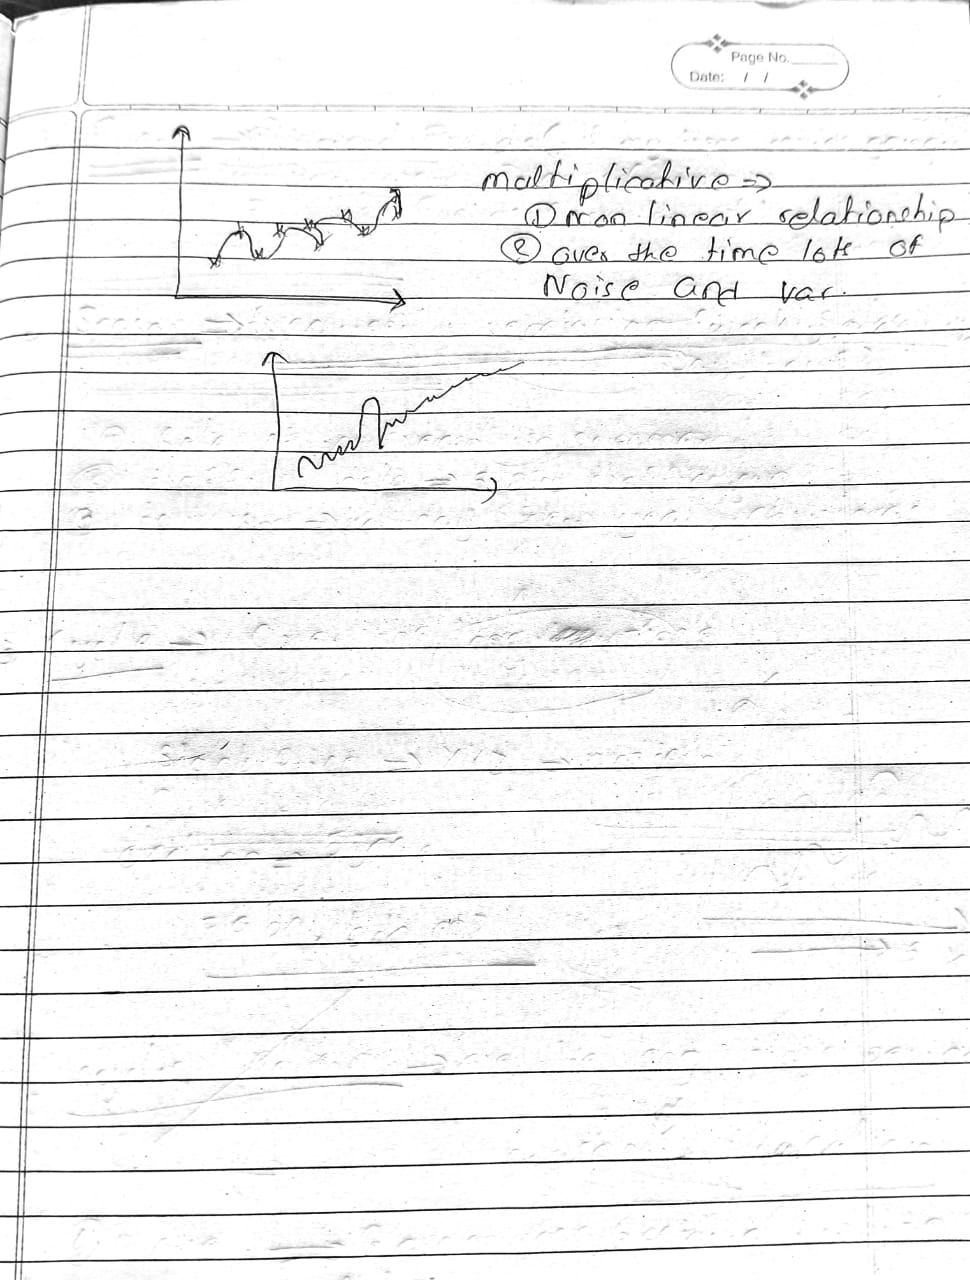 Page No.
Date: / /
multiplicative =>
① non linear relationship
② over the time lots of
Noise and var.